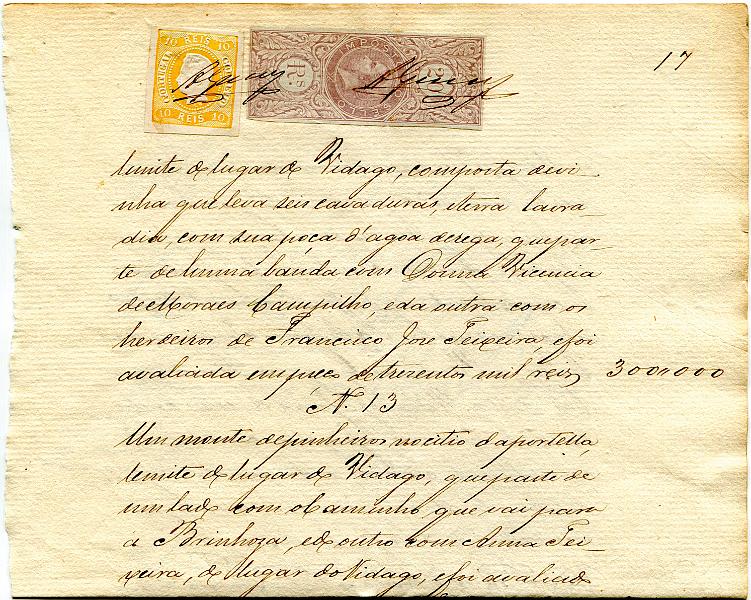 10 REIS 10
PORTUGAL
CORREIO
10 REIS 10
IMPOSTO
SELLO
Rs
17
lemite do lugar de Vidago, composta devi-
nha que leva seis cavaduras, eterra lavra-
dia, com sua poça d'agoa derega, quepar-
te dehuma banda com Donna Vicencia
deMoraes Campilho, eda outra com os
herdeiros de Francisco Jose Teixeira, efoi
avaliada empreço detrezentos mil reis, 300,,000
N. 13
Um monte depinheiros nocitio daportella,
lemite do lugar de Vidago, queparte de
umlado com oCaminho que vai para
a Brinhoza, edo outro com Anna Tei-
xeira, do lugar doVidago, efoi avaliado